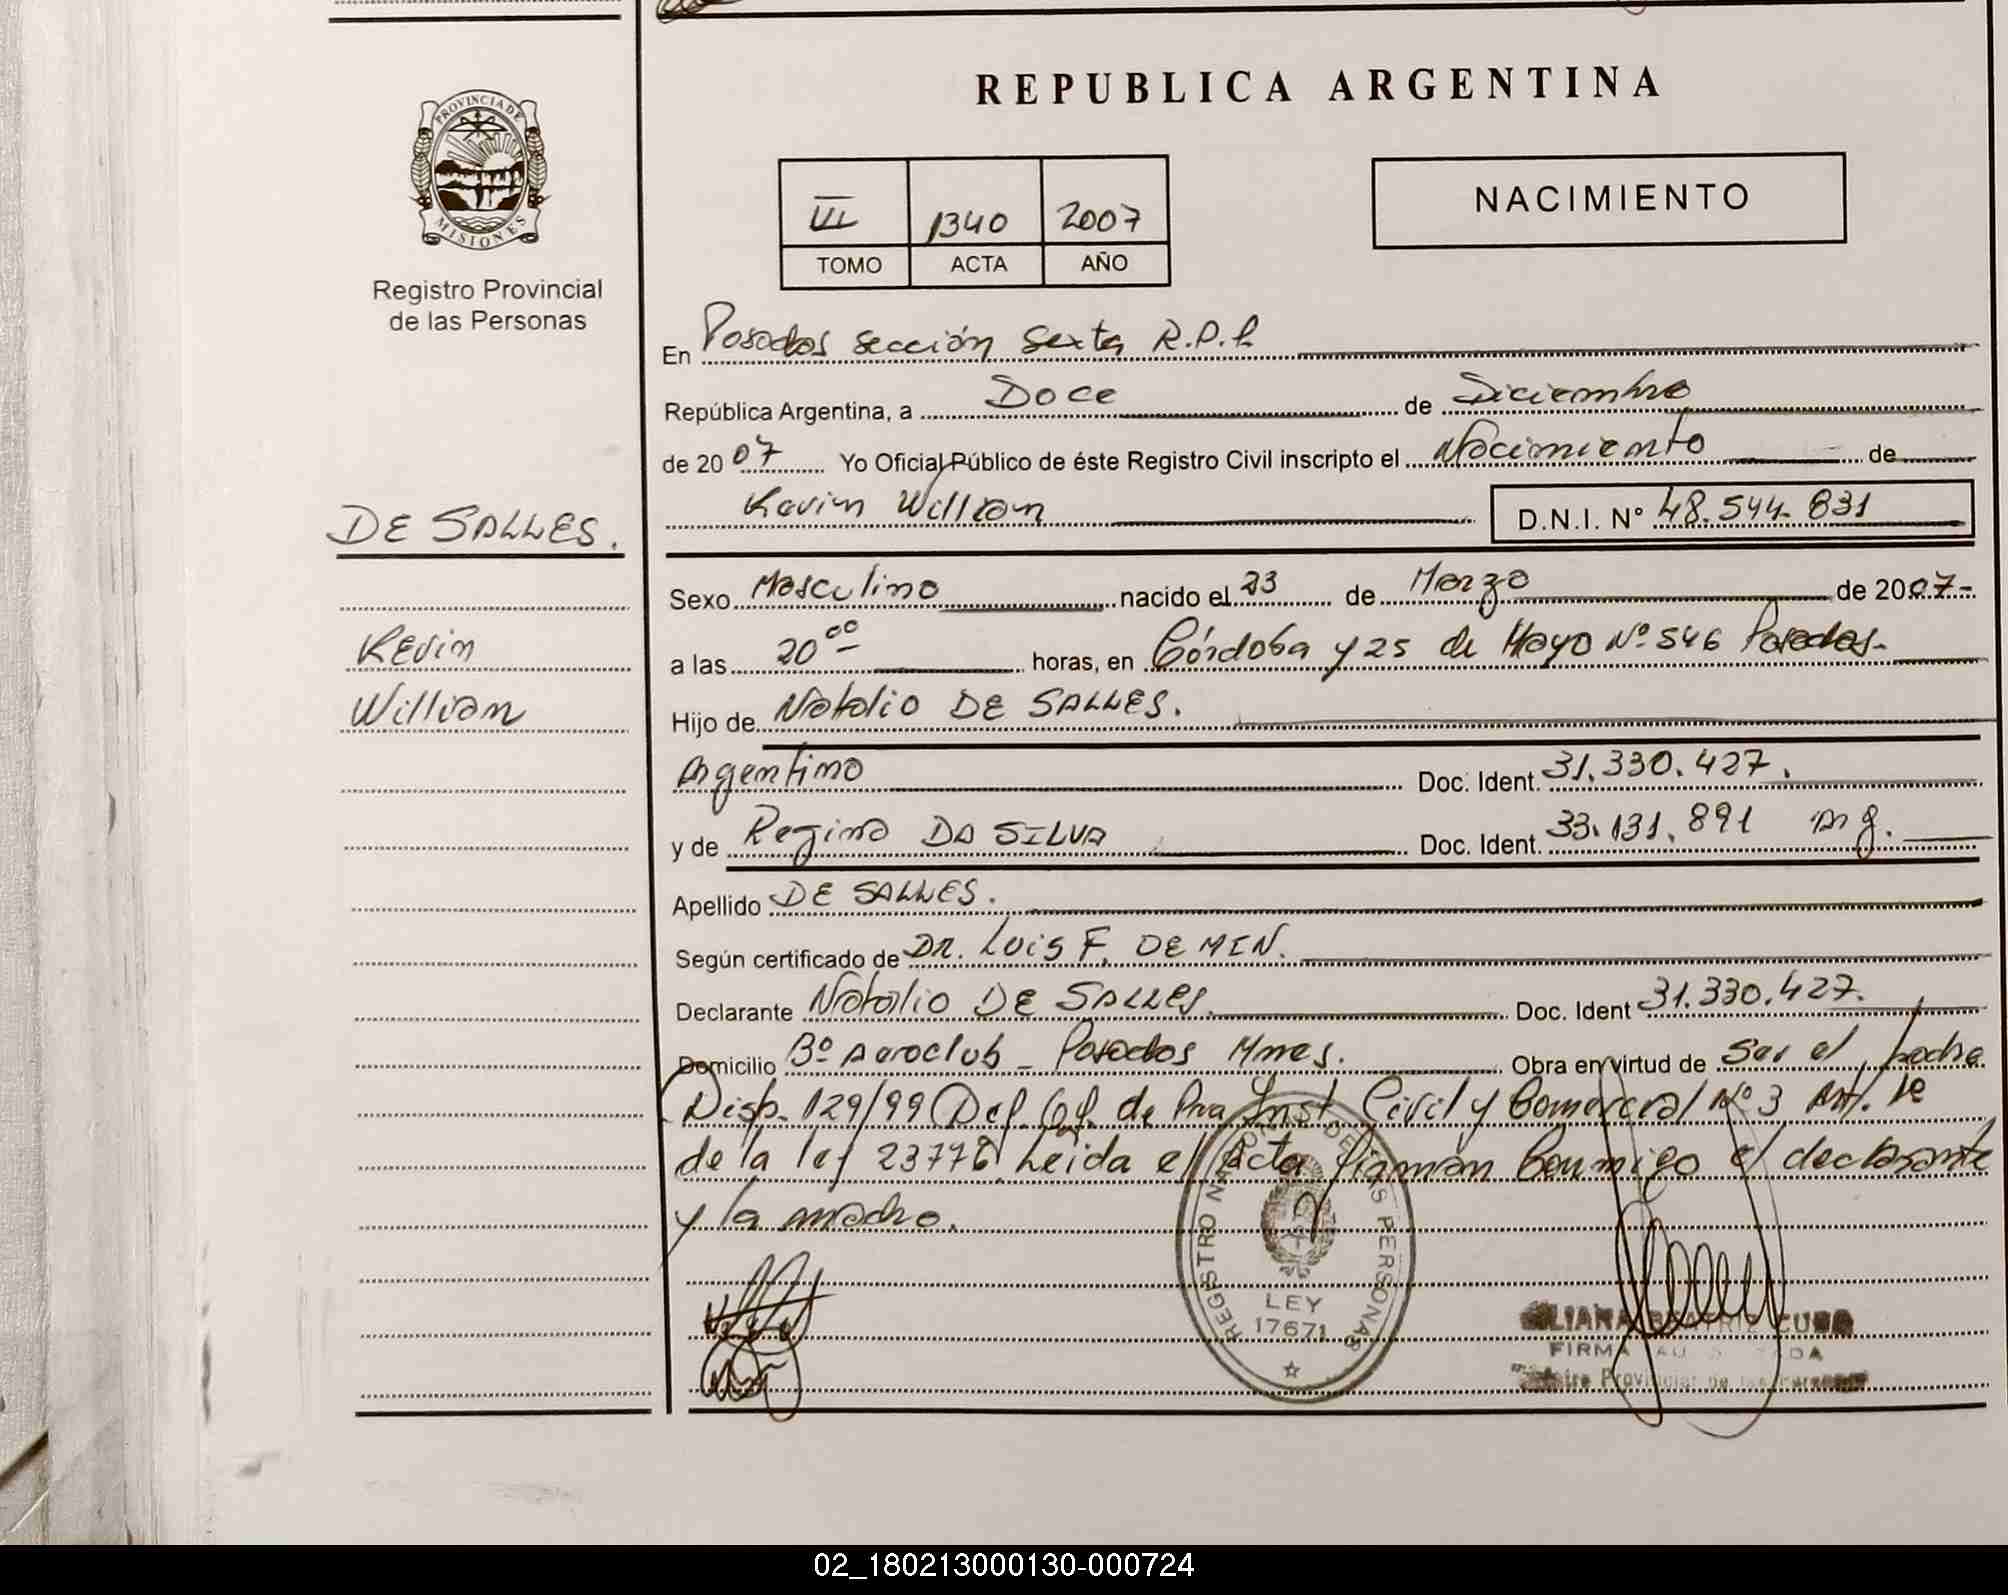 REPUBLICA ARGENTINA
PROVINCIA DE
MISIONES
Registro Provincial
de las Personas
1340 2007
TOMO ACTA AÑO
NACIMIENTO
En Posadas sección Sexta R.P.P.
República Argentina, a Doce de Diciembre
de 2007 Yo Oficial Público de éste Registro Civil inscripto el Nacimiento de
Kevin Willian D.N.I. N° 48.544.831
DE SALLES.
Kevin
Willian
Sexo Masculino nacido el 23 de Marzo de 2007-
a las 20 00 horas, en Córdoba y 25 de Mayo Nº 546 Posadas-
Hijo de Natalio DE SALLES.
Argentino Doc. Ident. 31.330.427.
y de Regina DA SILVA Doc. Ident. 33.131.891 Arg.
Apellido DE SALLES.
Según certificado de DR. LUIS F. DEMIN.
Declarante Natalio DE SALLES. Doc. Ident 31.330.427.
Domicilio Bº Aeroclub - Posadas Mnes. Obra en virtud de Ser el padre
Disp. 129/99 Def. Of. de Pra Inst Civil y Comercial Nº 3 Art. 1º
de la ley 23776 Leída el Acta firman Conmigo el declarante
y la madre.
REGISTRO NACIONAL DE LAS PERSONAS
LEY
17671
FIRMA AUTORIZADA
Provincial de las Personas
02_180213000130-000724